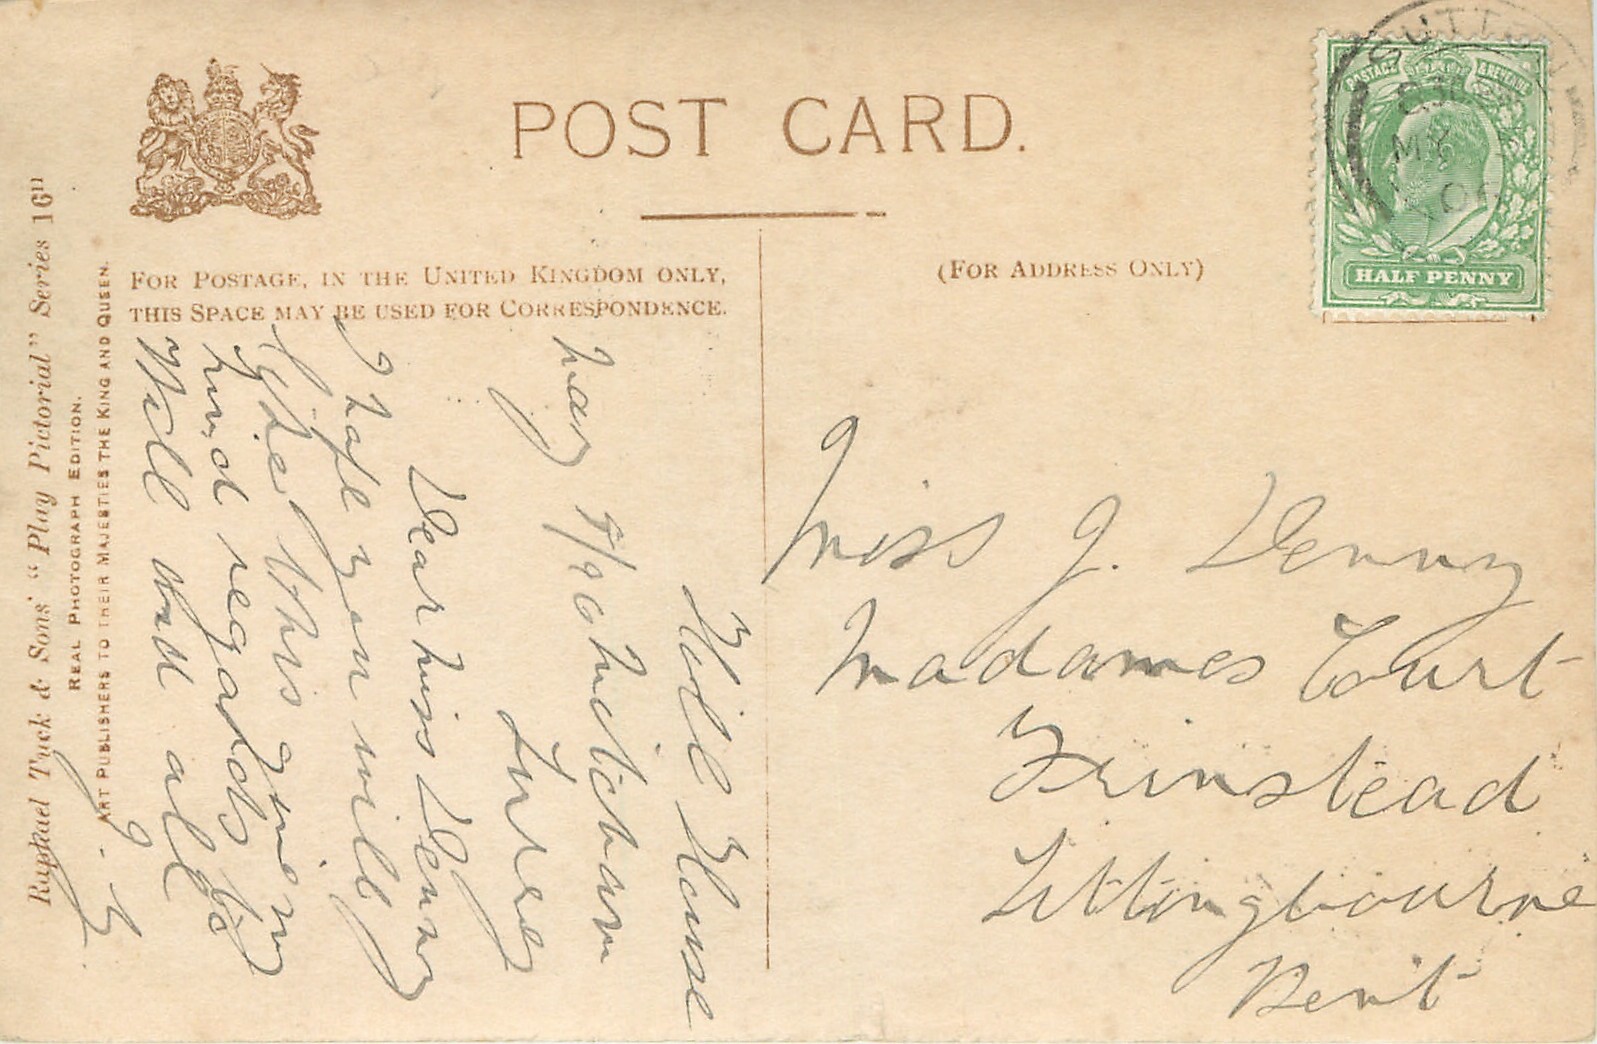 POST CARD.
FOR POSTAGE, IN THE UNITED KINGDOM ONLY,
THIS SPACE MAY BE USED FOR CORRESPONDENCE.
(FOR ADDRESS ONLY)
POSTAGE & REVENUE
HALF PENNY
SUTTON
MY 8
06
Raphael Tuck & Sons' "Play Pictorial" Series 16"
REAL PHOTOGRAPH EDITION.
ART PUBLISHERS TO THEIR MAJESTIES THE KING AND QUEEN.
Hill House
May 8/06 Mitcham
Surrey
Dear Miss Denny
I hope you will
like this
Kind regards to
Will and all
Miss J. Denny
Madames Court
Frinstead
Sittingbourne
Kent